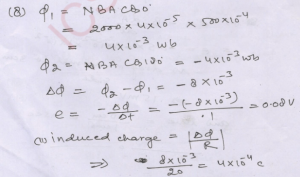 (8) φ₁ = NBA Cos0°
= 2000 × 4×10⁻⁵ × 500×10⁻⁴
= 4×10⁻³ wb
φ₂ = NBA Cos180° = -4×10⁻³ wb
Δφ = φ₂ - φ₁ = -8×10⁻³
e = -Δφ/Δt = -(-8×10⁻³)/.1 = 0.08V
(ii) induced charge = |Δφ/R|
⇒ 8×10⁻³/20 = 4×10⁻⁴ c